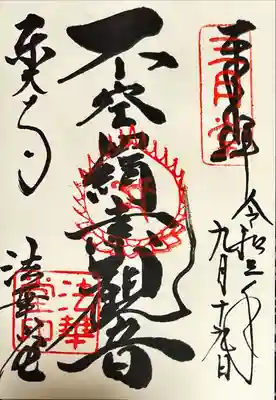 奉拝
三月堂
令和三年
九月十九日
不空絹索観音
東大寺
法華堂
法華堂印